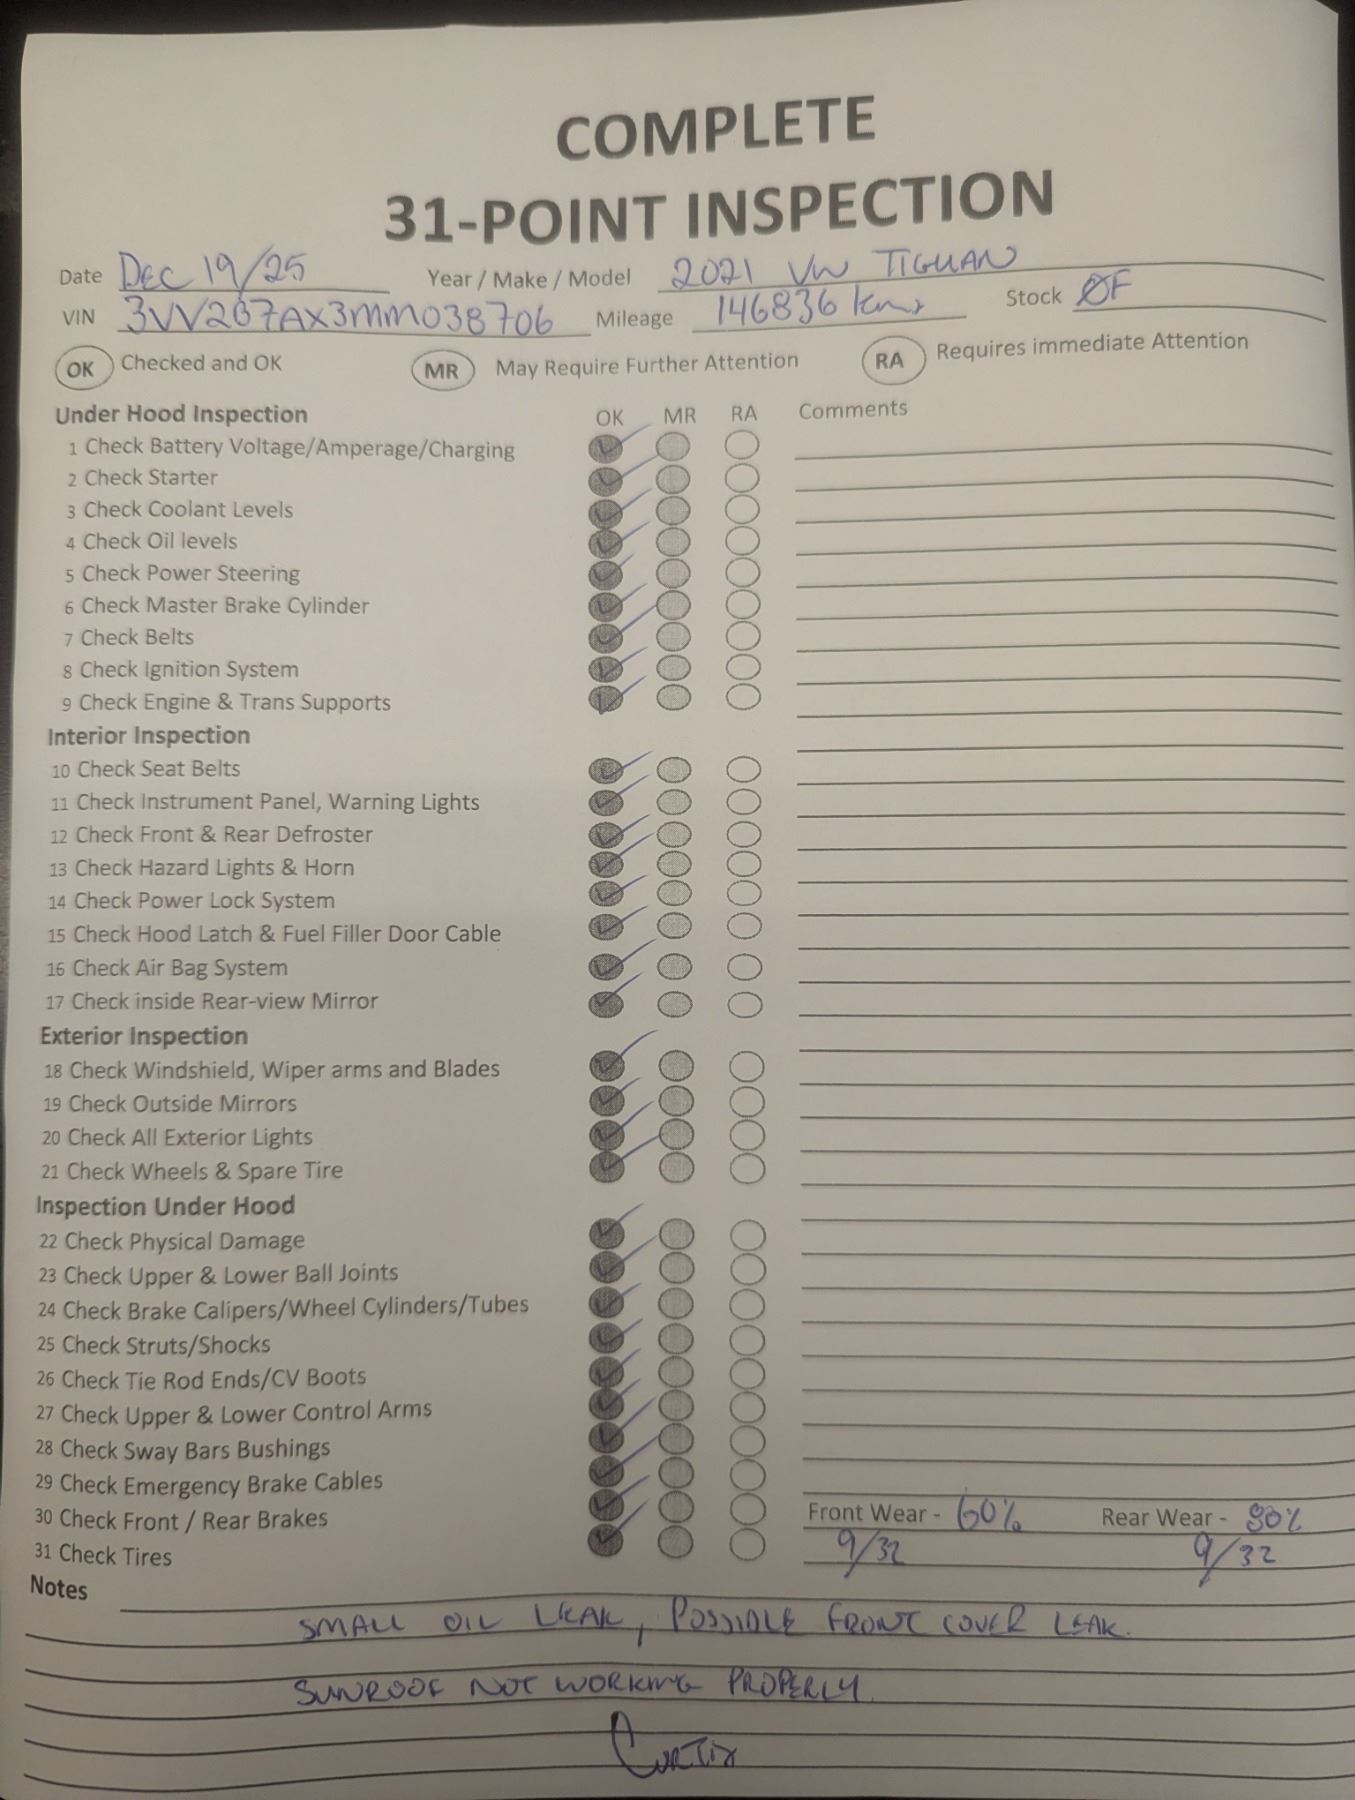 COMPLETE
31-POINT INSPECTION
Date Dec 19/25 Year / Make / Model 2021 VW TIGUAN
VIN 3VV2B7AX3MM038706 Mileage 146836 kms Stock ØF
OK Checked and OK MR May Require Further Attention RA Requires immediate Attention
Under Hood Inspection OK MR RA Comments
1 Check Battery Voltage/Amperage/Charging
2 Check Starter
3 Check Coolant Levels
4 Check Oil levels
5 Check Power Steering
6 Check Master Brake Cylinder
7 Check Belts
8 Check Ignition System
9 Check Engine & Trans Supports
Interior Inspection
10 Check Seat Belts
11 Check Instrument Panel, Warning Lights
12 Check Front & Rear Defroster
13 Check Hazard Lights & Horn
14 Check Power Lock System
15 Check Hood Latch & Fuel Filler Door Cable
16 Check Air Bag System
17 Check inside Rear-view Mirror
Exterior Inspection
18 Check Windshield, Wiper arms and Blades
19 Check Outside Mirrors
20 Check All Exterior Lights
21 Check Wheels & Spare Tire
Inspection Under Hood
22 Check Physical Damage
23 Check Upper & Lower Ball Joints
24 Check Brake Calipers/Wheel Cylinders/Tubes
25 Check Struts/Shocks
26 Check Tie Rod Ends/CV Boots
27 Check Upper & Lower Control Arms
28 Check Sway Bars Bushings
29 Check Emergency Brake Cables
30 Check Front / Rear Brakes Front Wear - 60% Rear Wear - 80%
31 Check Tires 9/32 9/32
Notes
SMALL OIL LEAK, POSSIBLE FRONT COVER LEAK.
SUNROOF NOT WORKING PROPERLY.
Curtis